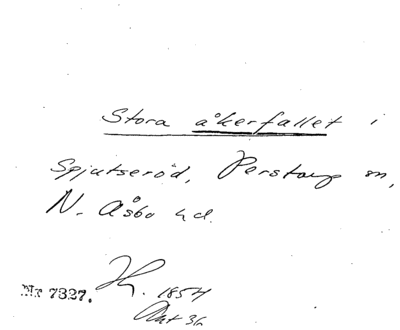 Stora åkerfallet i
Spjutseröd, Perstorp sn,
N. Åsbo hd.
Nr 7327. H. 1854
Akt 36